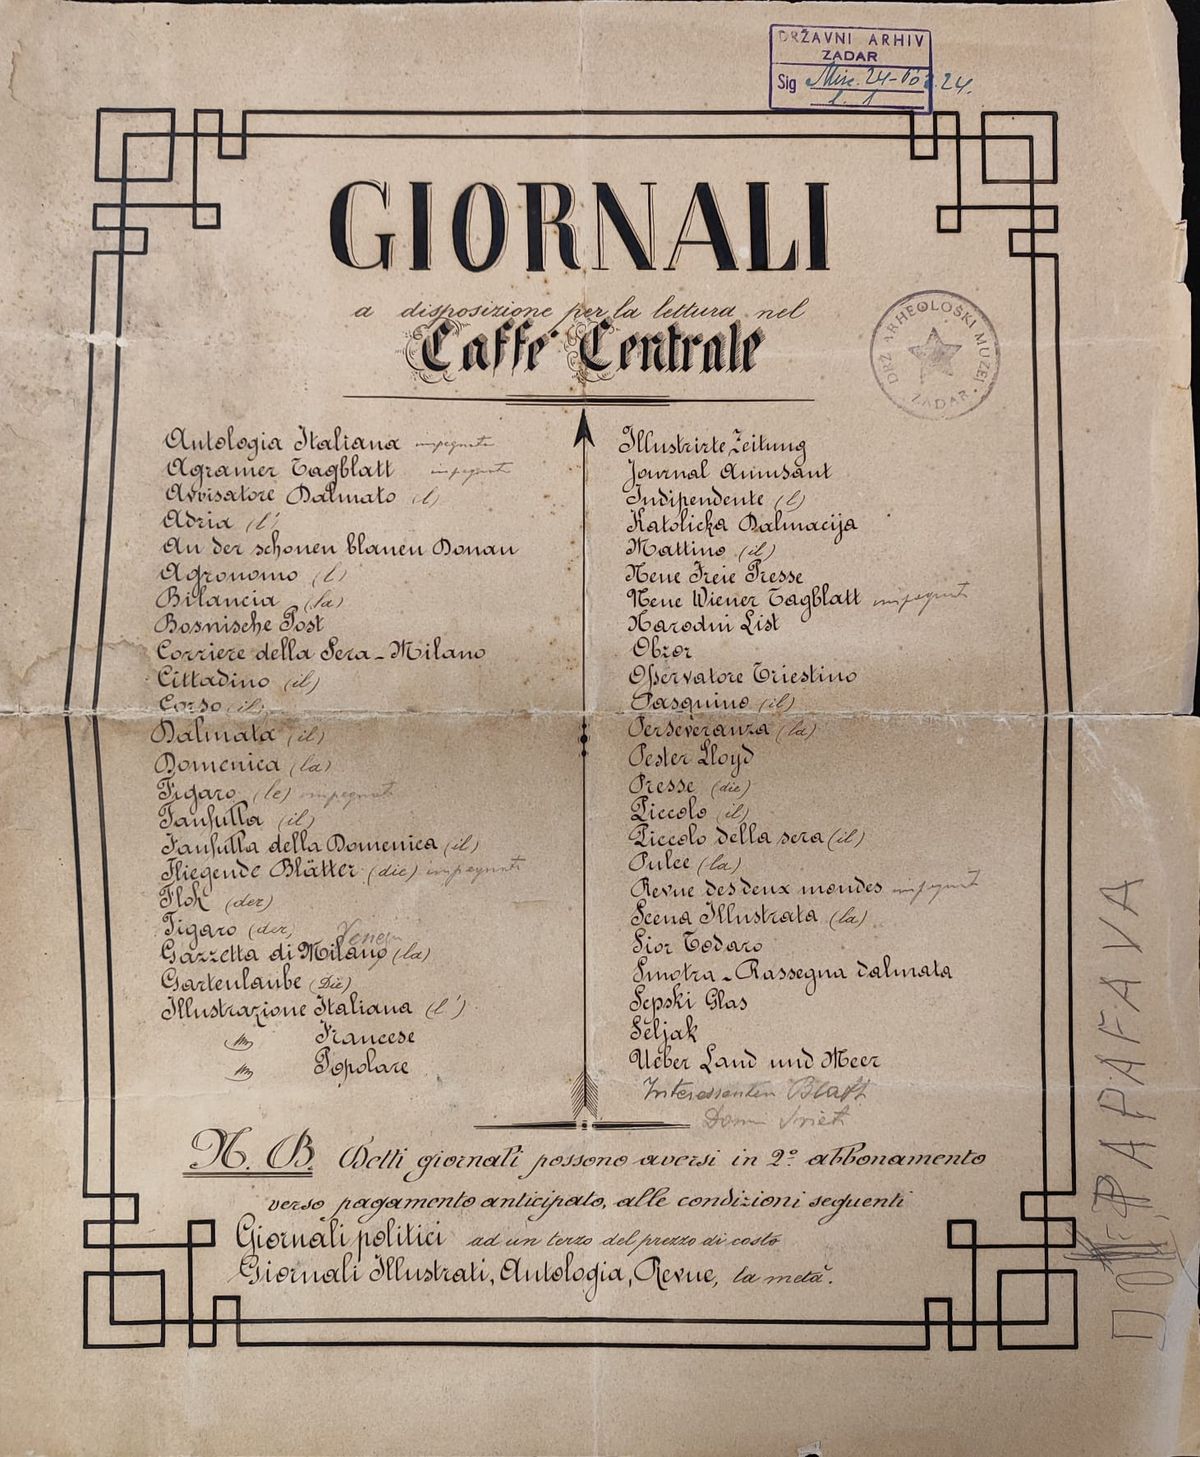 DRŽAVNI ARHIV
ZADAR
Sig Misc. 24-Poz. 24.
L. 1
GIORNALI
a disposizione per la lettura nel
Caffè Centrale
DRŽ ARHEOLOŠKI MUZEJ · ZADAR ·
Antologia Italiana impegnato
Agramer Tagblatt impegnato
Avvisatore Dalmato (l)
Adria (l'
An der schonen blauen Donau
Agronomo (l)
Bilancia (la)
Bosnische Post
Corriere della Sera - Milano
Cittadino (il)
Corso (il)
Dalmata (il)
Domenica (la)
Figaro (le) impegnato
Fanfulla (il)
Fanfulla della Domenica (il)
Fliegende Blätter (die) impegnato
Floh (der)
Figaro (der)
Gazzetta di Milano (la)
Gartenlaube (Die)
Illustrazione Italiana (l')
" Francese
" Popolare
Illustrirte Zeitung
Journal Amusant
Indipendente (l)
Katolicka Dalmacija
Mattino (il)
Neue Freie Presse
Neue Wiener Tagblatt impegnato
Narodni List
Obzor
Osservatore Triestino
Pasquino (il)
Perseveranza (la)
Pester Lloyd
Presse (die)
Piccolo (il)
Piccolo della sera (il)
Pulce (la)
Revue des deux mondes impegnato
Scena Illustrata (la)
Sior Todaro
Smotra - Rassegna dalmata
Sepski Glas
Seljak
Ueber Land und Meer
Interessanten Blatt
Dom Sviet
N. B. Detti giornali possono aversi in 2º abbonamento
verso pagamento anticipato, alle condizioni seguenti
Giornali politici ad un terzo del prezzo di costo
Giornali Illustrati, Antologia, Revue, la metà.
PAPAFAVA